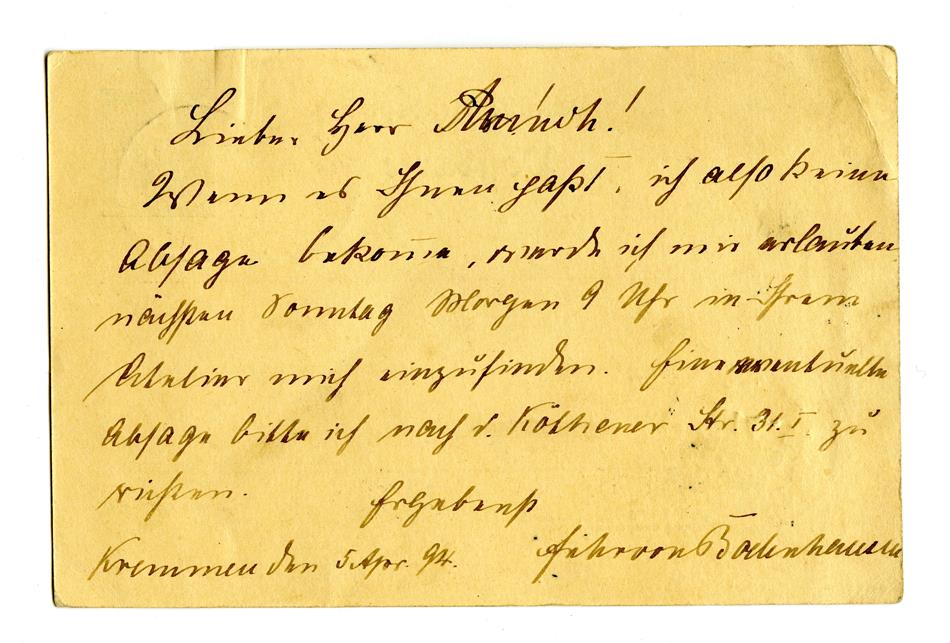 Lieber Herr Munch!
Wenn es Ihnen paßt, ich also keine
Absage bekomme, werde ich mir erlauben
nächsten Sonntag Morgen 9 Uhr in Ihrem
Atelier mich einzufinden. Eine eventuelle
Absage bitte ich nach d. Köthener Str. 31. I. zu
richten.
Ergebenst
Kremmen den 5 Apr. 94. von Bodenhausen